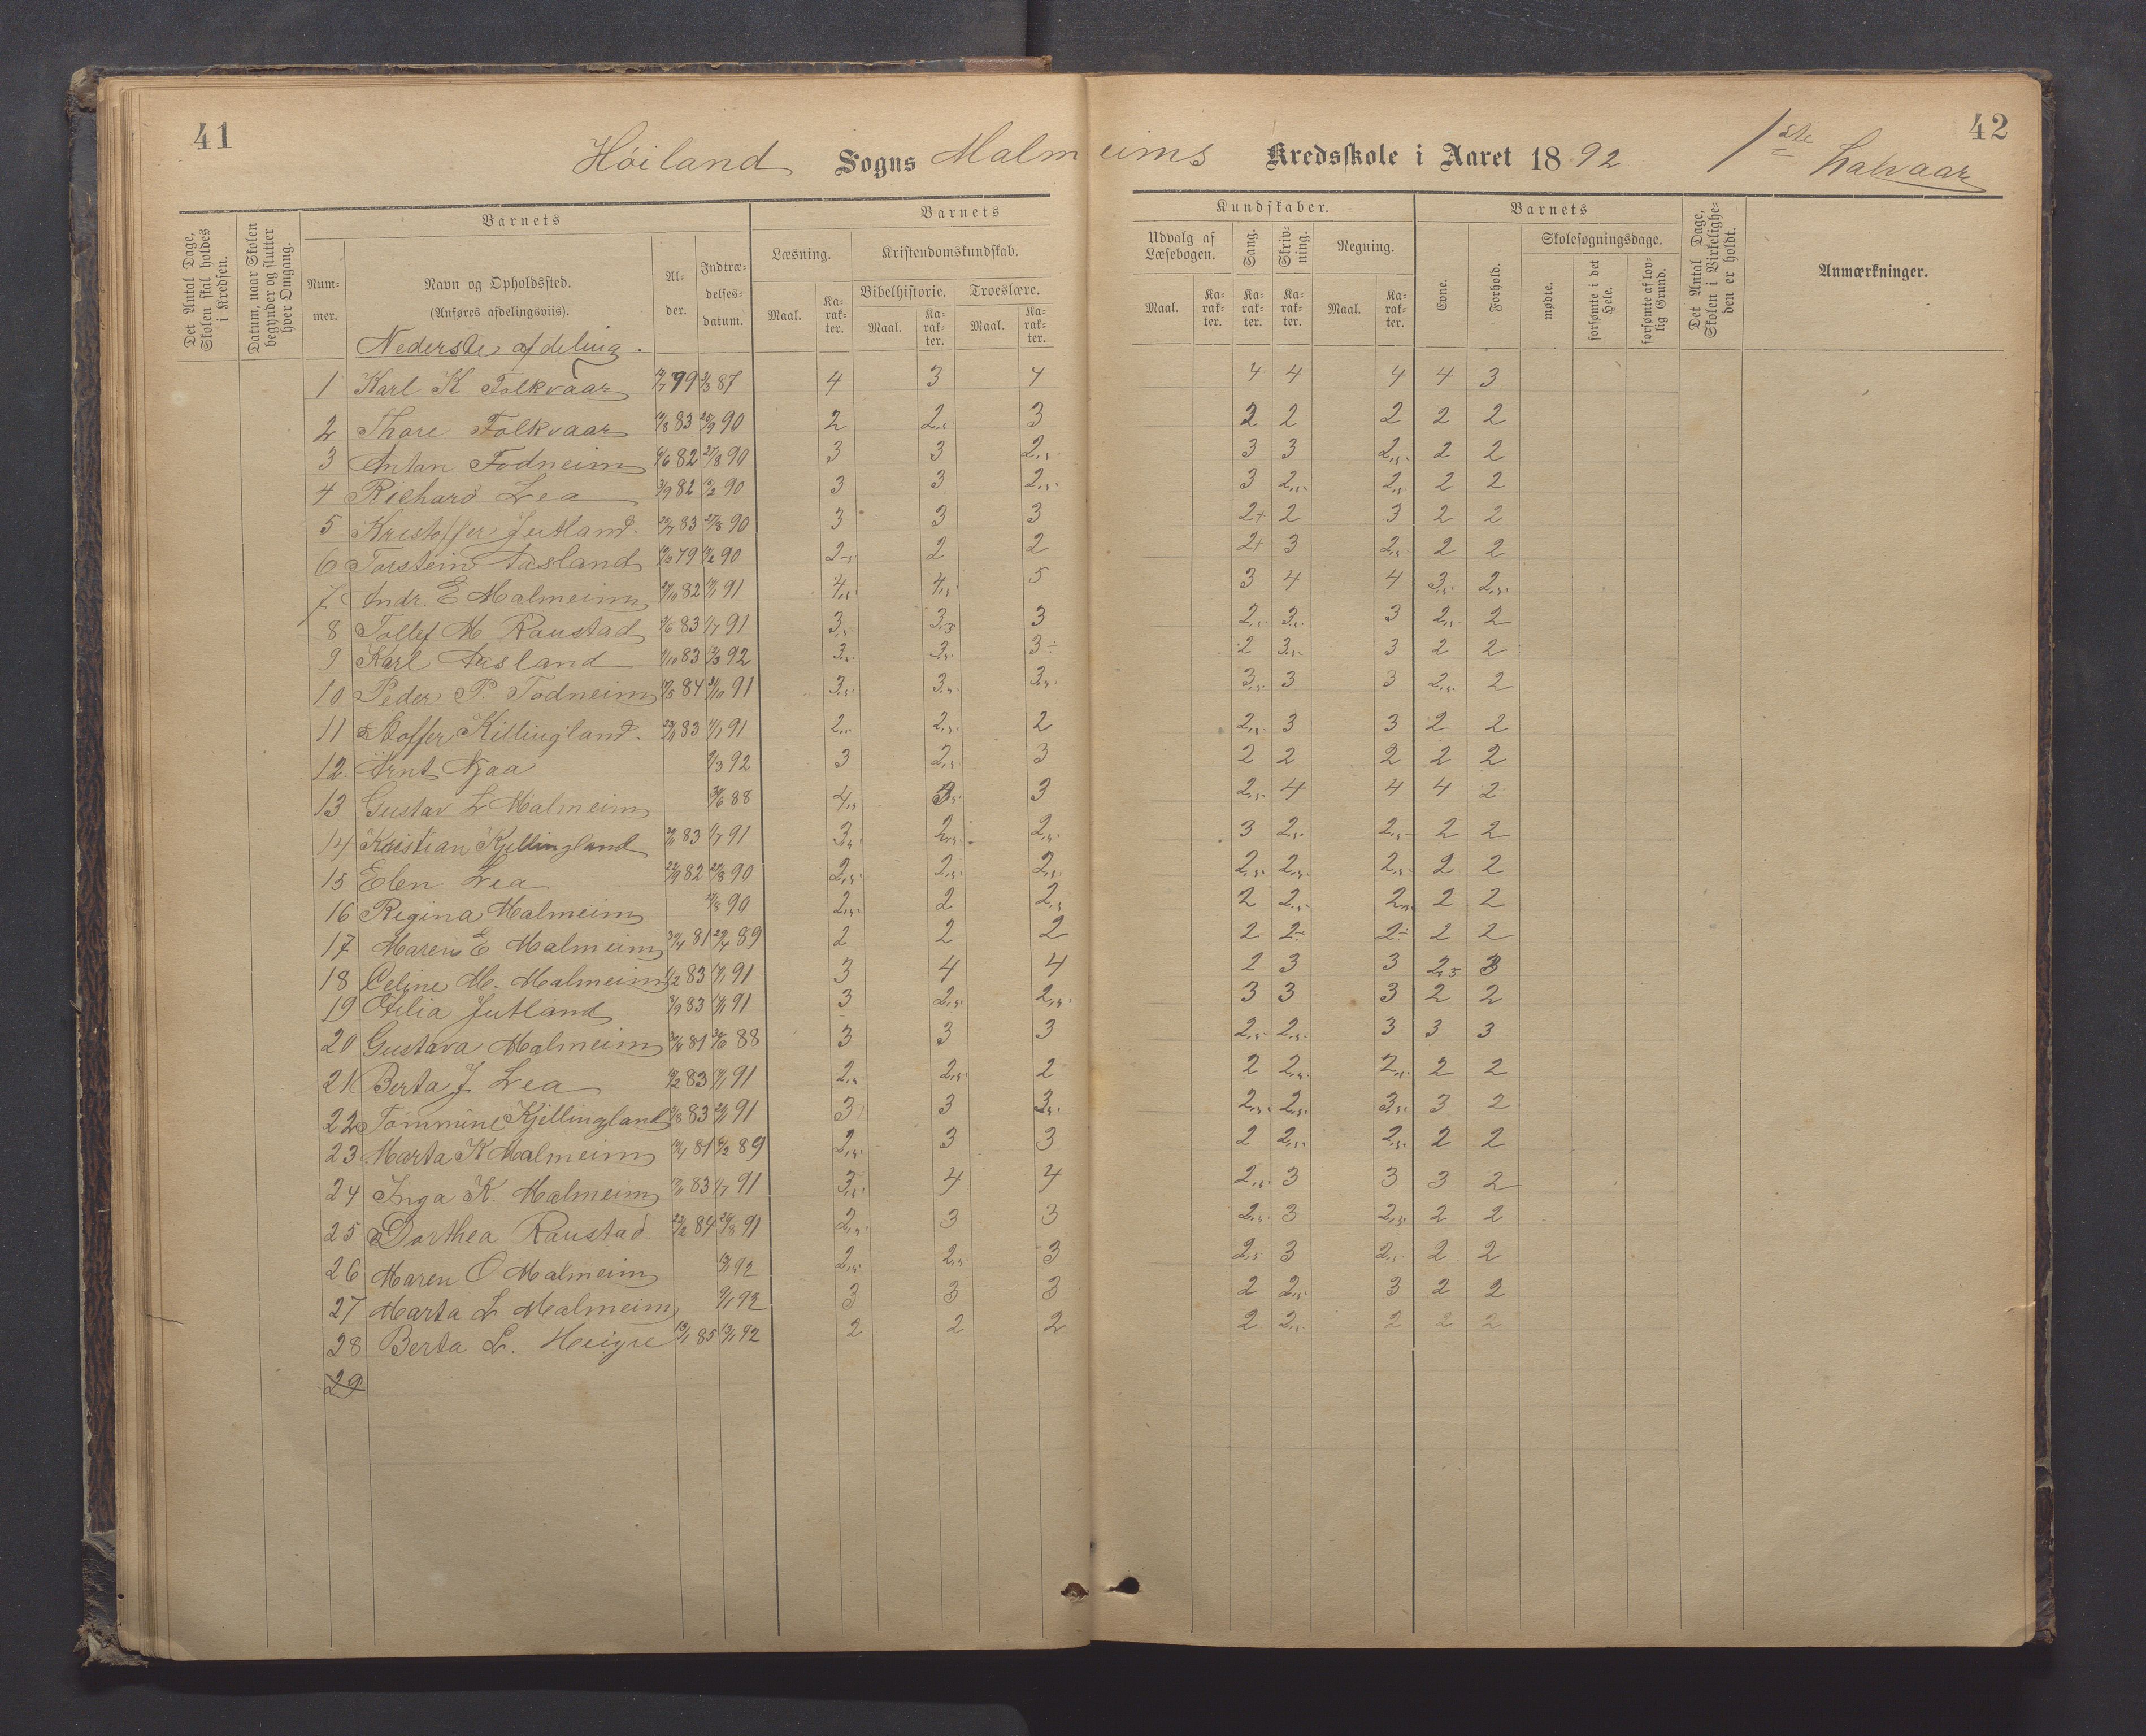 41
42
Höiland Sogns Malmeims Kredsskole i Aaret 1892 1ste Halvaar
Det Antal Dage, Skolen skal holdes i Kredsen.
Datum, naar Skolen begynder og slutter hver Omgang.
Barnets
Nummer.
Navn og Opholdssted. (Anføres afdelingsviis).
Alder.
Indtrædelsesdatum.
Barnets Kundskaber.
Læsning.
Kristendomskundskab.
Bibelhistorie.
Troeslære.
Maal. Karakter. Maal. Karakter. Maal. Karakter.
Udvalg af Læsebogen.
Sang.
Skrivning.
Regning.
Maal. Karakter. Karakter. Karakter. Maal. Karakter.
Barnets
Evne.
Forhold.
Skolesøgningsdage.
mødte.
forsømte i det Hele.
forsømte af lovlig Grund.
Det Antal Dage, Skolen i Virkeligheden er holdt.
Anmærkninger.
Nederste afdeling.
1 Karl K Folkvaar 79 2/3 87 4 3 4 4 4 4 4 3
2 Thore Folkvaar 83 90 2 2,5 3 2 2 2 2 2
3 Antan Fodneim 82 27/8 90 3 3 2,5 3 3 2,5 2 2
4 Richard Lea 3/9 82 90 3 3 2,5 3 2,5 2,5 2 2
5 Kristoffer Jutland 83 27/8 90 3 3 3 2+ 2 3 2 2
6 Torstein Aasland 79 90 2,5 2 2 2+ 3 2,5 2 2
7 Andr. E Malmeim 82 91 4,5 4,5 5 3 4 4 3,5 2,5
8 Tollef M Raustad 83 1/7 91 3,5 3,5 3 2,5 3,5 3 2,5 2
9 Karl Aasland 83 92 3,5 3,5 3÷ 2 3,5 3 2 2
10 Peder P. Todneim 84 91 3,5 3,5 3,5 3,5 3 3 2,5 2
11 Stoffer Killingland. 83 91 2,5 2,5 2 2,5 3 3 2 2
12 Arnt Njaa 92 3 2,5 3 2 2 2 2 2
13 Gustav L Malmeim 30/6 88 4,5 3,5 3 2,5 4 4 4 2
14 Kristian Kjellingland 83 1/7 91 3,5 2,5 2,5 3 2,5 2,5 2 2
15 Elen Lea 82 27/8 90 2,5 2,5 2,5 2,5 2,5 2,5 2 2
16 Regina Malmeim 90 2,5 2 2,5 2 2,5 2,5 2 2
17 Maren E Malmeim 30/4 81 89 2 2 2 2 2÷ 2÷ 2 2
18 Celine M. Malmeim 83 91 3 4 4 2 3 3 2,5 3
19 Otilia Jutland 83 91 3 2,5 2,5 3 3 3 2 2
20 Gustava Malmeim 81 30/6 88 3 3 3 2,5 2,5 3 3 3
21 Berta J Lea 83 91 2,5 2,5 2 2 2,5 2,5 2 2
22 Tommine Kjellingland 83 91 3 3 3,5 2,5 2,5 3,5 3 2
23 Marta K Malmeim 81 89 2,5 3 3 2 2,5 2,5 2 2
24 Inga K. Malmeim 83 1/7 91 3,5 4 4 2,5 3 3 3 2
25 Dorthea Raustad 84 26/8 91 2,5 3 3 2,5 3 2,5 2 2
26 Maren O Malmeim 92 2,5 2,5 3 2,5 3 2,5 2 2
27 Marta L Malmeim 92 3 3 3 2 2,5 3 2 2
28 Berta L. Heigre 13/1 85 13/1 92 2 2 2 2 2,5 2 2 2
29